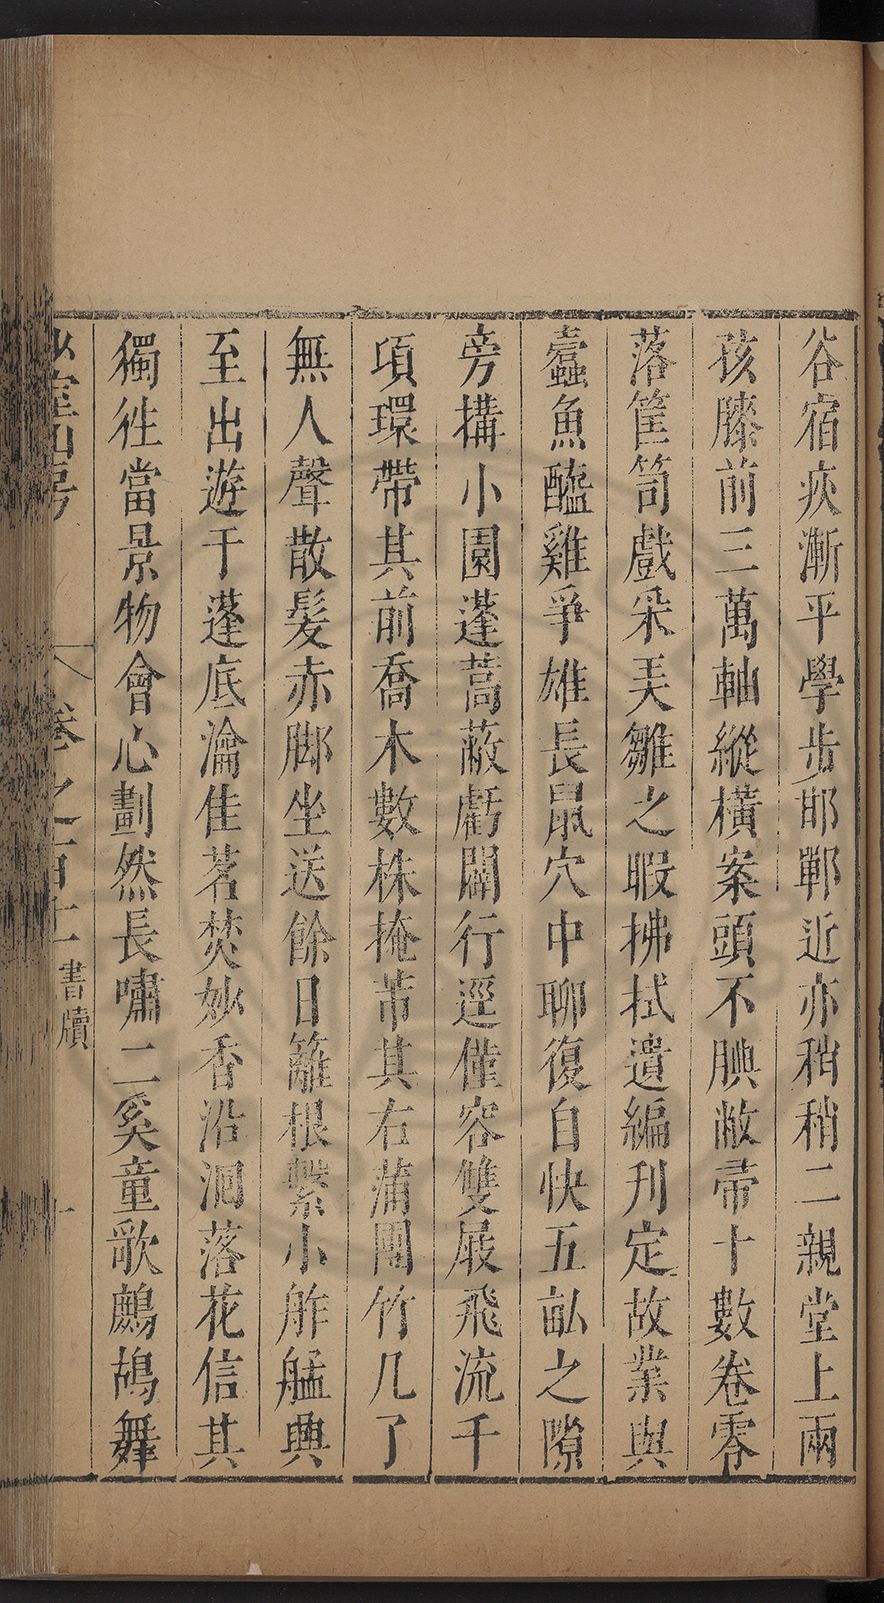 谷宿疾漸平學步邯鄲近亦稍稍二親堂上兩
孩膝前三萬軸縱橫案頭不腆敝帚十數卷零
落筐笥戲采弄雛之暇拂拭遺編刋定故業與
蠹魚醯雞爭雄長鼠穴中聊復自快五畝之隙
旁搆小園蓬蒿蔽虧闢行逕僅容雙屐飛流千
項環帶其前喬木數株掩芾其右蒲團竹几了
無人聲散髮赤脚坐送餘日籬根繫小舴艋興
至出遊干蓬底瀹佳茗焚妙香沿洄落花信其
獨徃當景物會心劃然長嘯二奚童歌鷓鴣舞
室山房 卷之百十 書牘 十